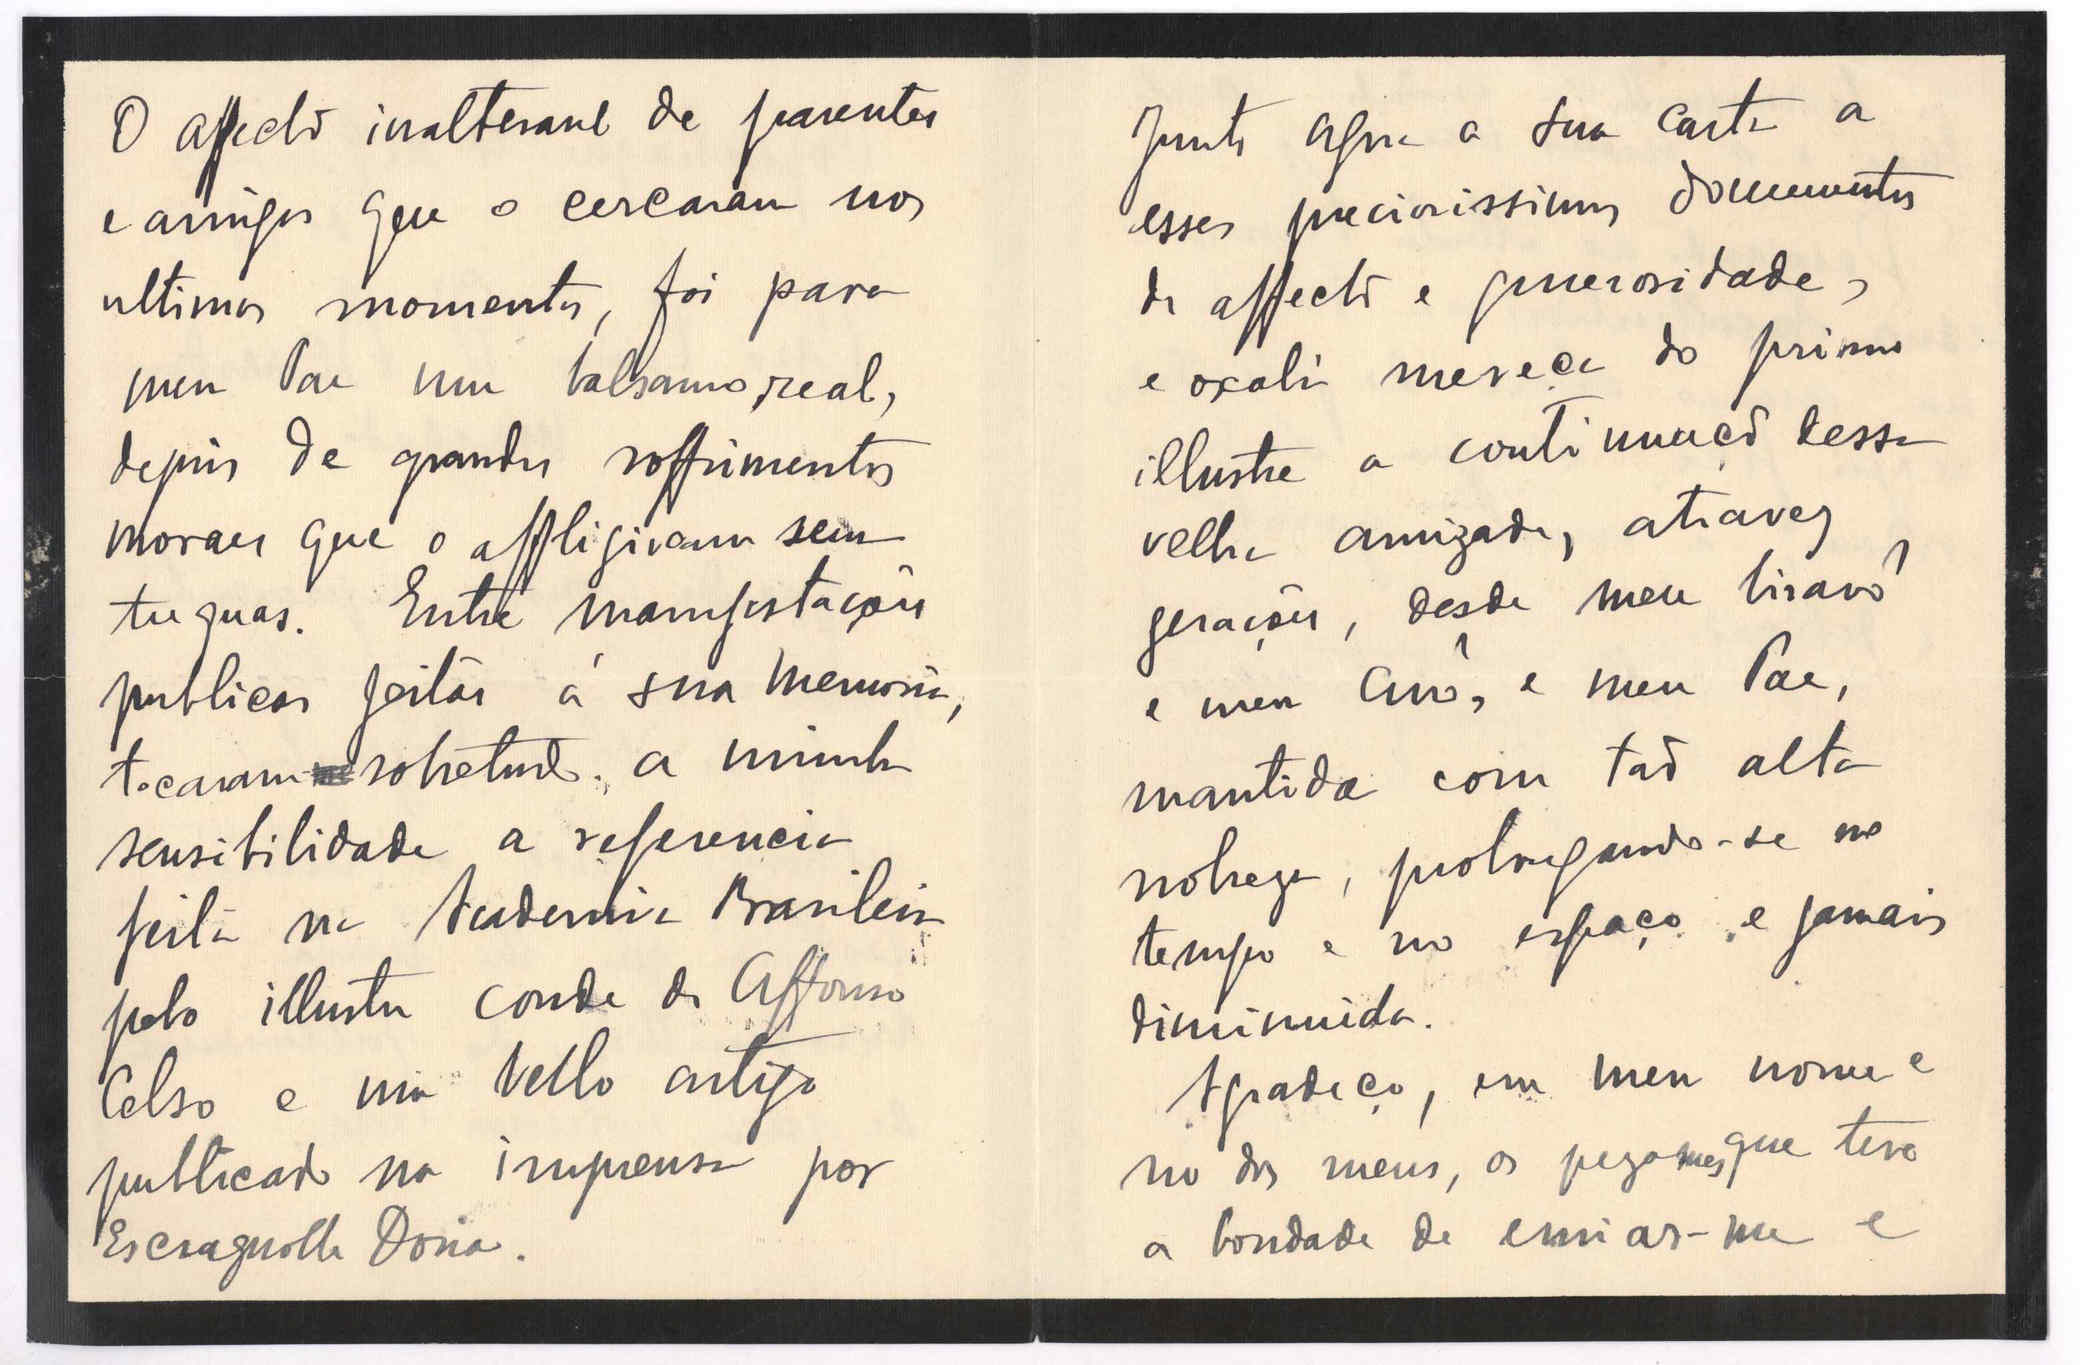 O affecto inalteravel de parentes
e amigos que o cercaram nos
ultimos momentos, foi para
meu Pae um balsamo real,
depois de grandes soffrimentos
moraes que o affligiram sem
treguas. Entre manifestações
publicas feitas á sua memoria,
tocaram sobretudo a minha
sensibilidade a referencia
feita na Academia Brasileira
pelo illustre conde de Affonso
Celso e um bello artigo
publicado na imprensa por
Escragnolle Doria.
Junto agora a sua carta a
esses preciosissimos documentos
de affecto e generosidade,
e oxalá mereça do primo
illustre a continuação dessa
velha amizade, atravez
gerações, desde meu bisavô
e meu avô, e meu Pae,
mantida com tão alta
nobreza, prolongando-se no
tempo e no espaço e jamais
diminuida.
Agradeço, em meu nome e
no dos meus, os pezames que teve
a bondade de enviar-me e